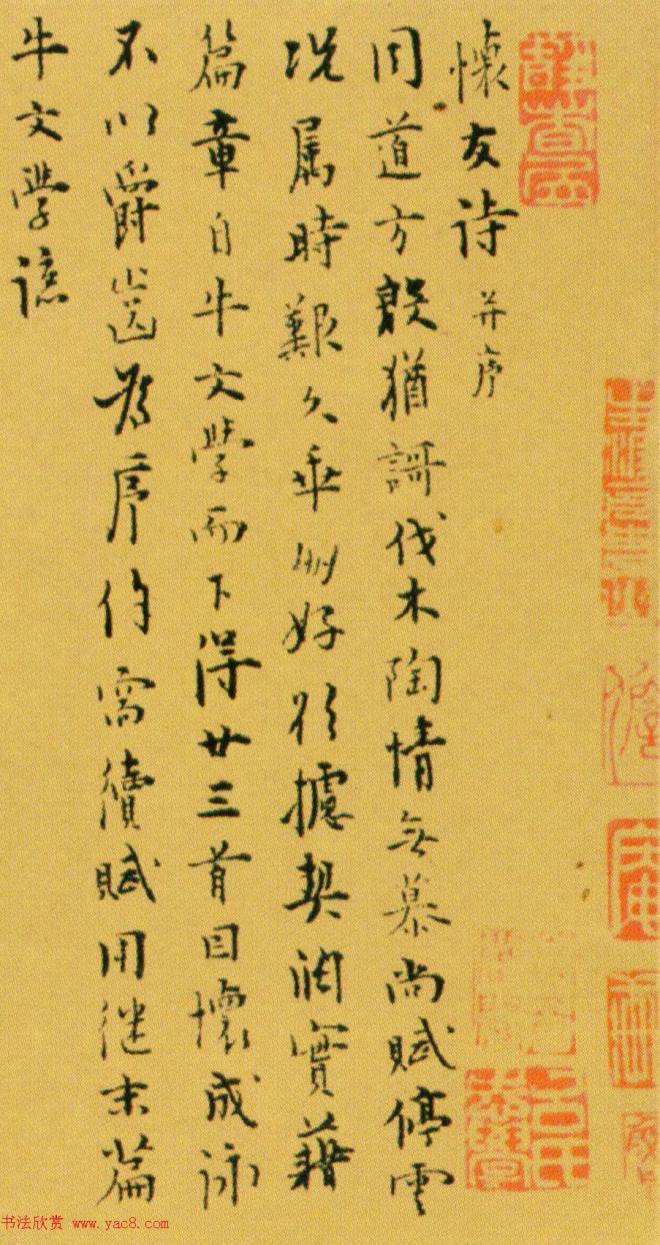 懷友詩并序
周道方親猶謌伐木陶情無慕尚賦停雲
況屬時艱久乖朋好於攄契闊實藉
篇章自牛文學而下得廿三首因懷成詠
不以爵齒為序俟需續賦用继末篇
牛文學諒
书法欣赏 www.yac8.com